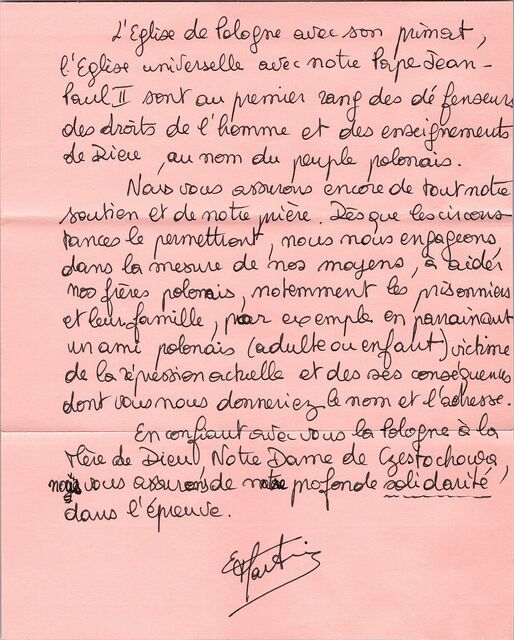 L'Eglise de Pologne avec son primat,
l'Eglise universelle avec notre Pape Jean-
Paul II sont au premier rang des défenseurs
des droits de l'homme et des enseignements
de Dieu, au nom du peuple polonais.
Nous vous assurons encore de tout notre
soutien et de notre prière. Dès que les circons-
tances le permettront, nous nous engageons,
dans la mesure de nos moyens, à aider
nos frères polonais, notemment les prisonniers
et leur famille, par exemple en parrainant
un ami polonais (adulte ou enfant) victime
de la répression actuelle et des ses conséquences
dont vous nous donneriez le nom et l'adresse.
En confiant avec vous la Pologne à la
Mère de Dieu, Notre Dame de Czestochowa,
nous vous assurons de notre profonde solidarité
dans l'épreuve.
EMartin